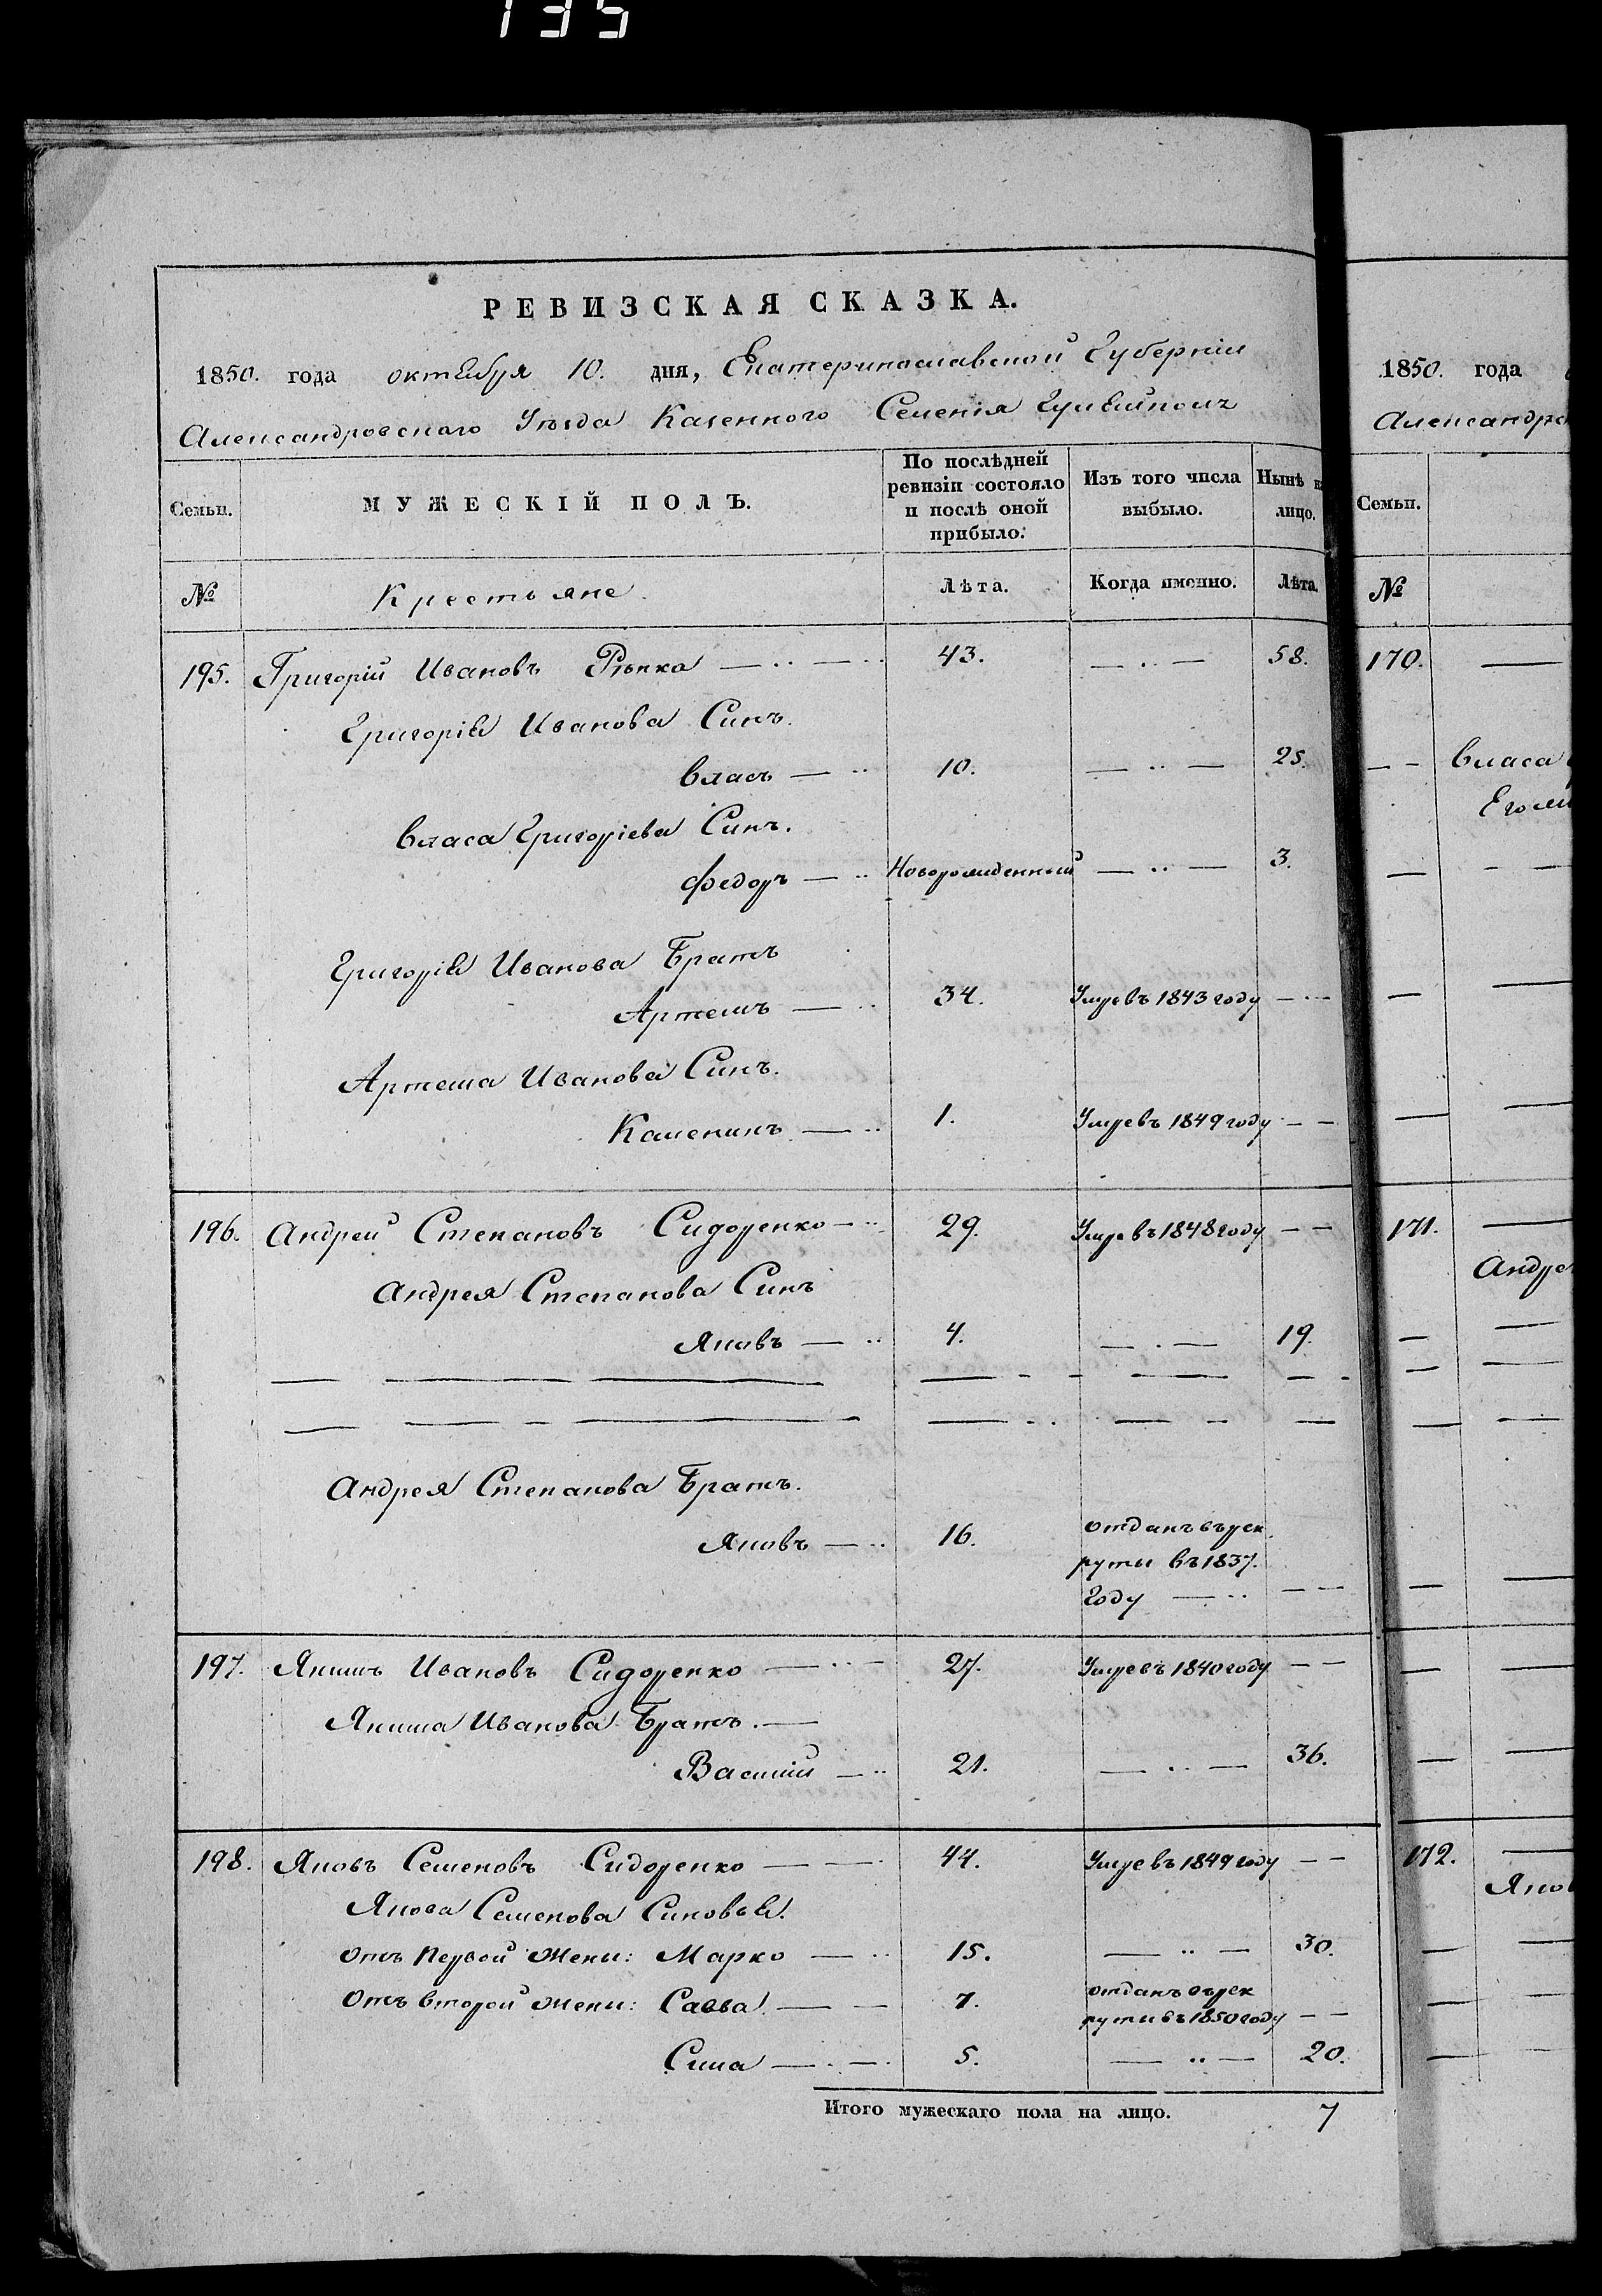 135
РЕВИЗСКАЯ СКАЗКА.
1850. года октября 10. дня, Екатеринославской Губерніи
Александровскаго Уѣзда Казенного Селенія Гуляйполь
Семьи. МУЖЕСКІЙ ПОЛЪ. По послѣдней ревизіи состояло и послѣ оной прибыло: Изъ того числа выбыло. Нынѣ н лицо.
№ Крестьяне. Лѣта. Когда именно. Лѣта.
195. Григорій Ивановъ Рѣпка 43. 58.
Григорія Иванова Синъ.
Власъ 10. 25.
Власа Григоріева Синъ.
Федоръ Новорожденный 3.
Григорія Иванова Братъ
Артемъ 34. Умре въ 1843 году
Артема Иванова Синъ.
Каленикъ 1. Умре въ 1849 году
196. Андрей Степановъ Сидоренко 29. Умре въ 1848 году
Андрея Степанова Синъ
Яковъ 4. 19.
Андрея Степанова Братъ.
Яковъ 16. отданъ въ рек
руты въ 1837.
году
197. Якимъ Ивановъ Сидоренко 27. Умре въ 1840 году
Якима Иванова Братъ.
Василій 21. 36.
198. Яковъ Семеновъ Сидоренко 44. Умре въ 1849 году
Якова Семенова Синовья.
отъ Первой Жены: Марко 15. 30.
Отъ второй жены: Савва 7. отданъ въ рек
руты въ 1850 году
Сима 5. 20.
Итого мужескаго пола на лицо. 7
1850. года
Александро
Семьи.
№
170.
Власа
Его
171.
Андре
172.
Яков